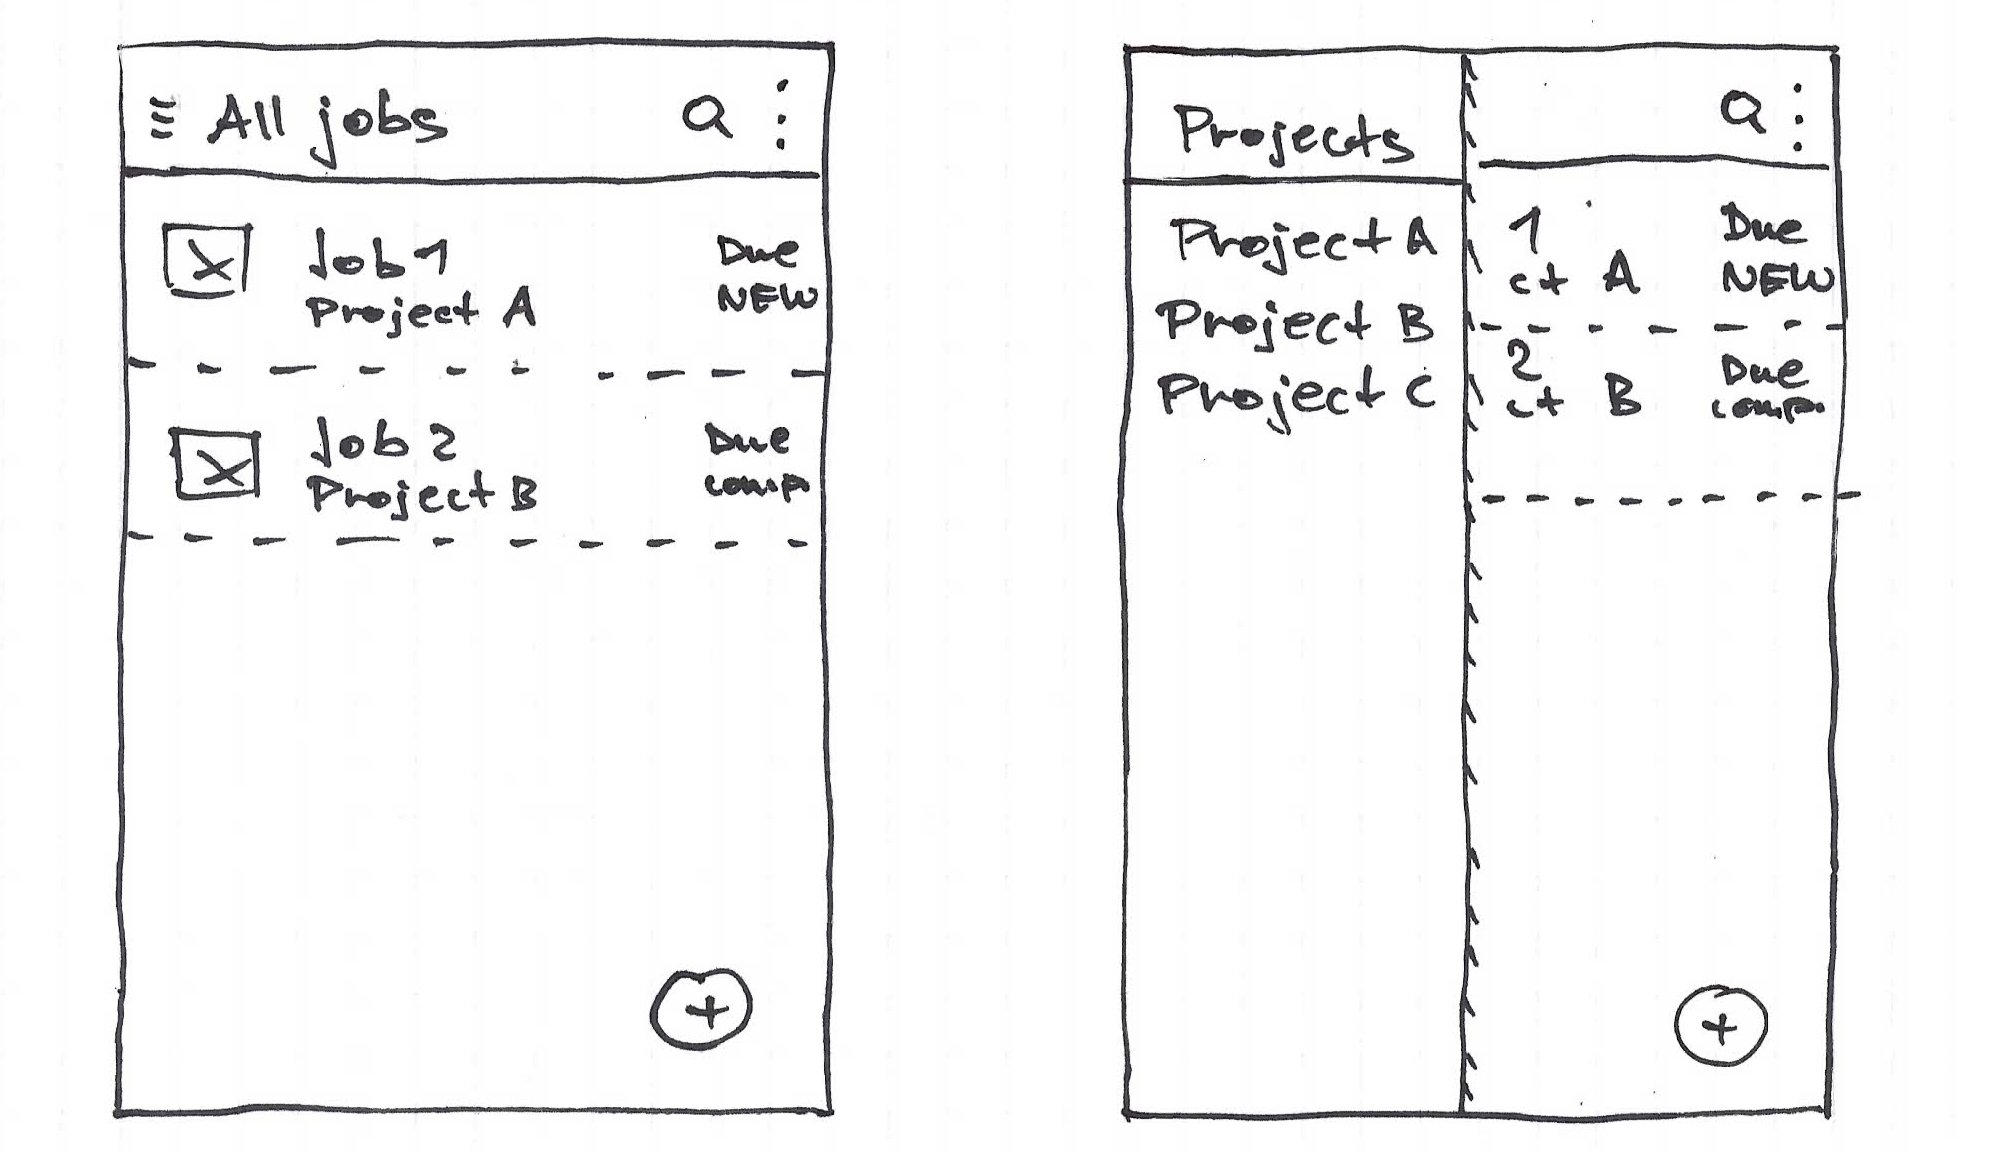 All jobs
Job 1
Project A
Due
NEW
Job 2
Project B
Due
comp.
Projects
Project A
Project B
Project C
1
ct A
Due
NEW
2
ct B
Due
comp.